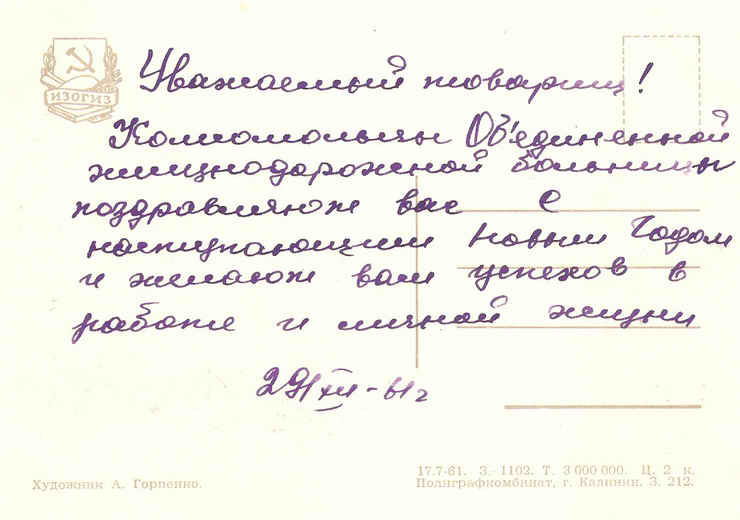 ИЗОГИЗ
Уважаемый товарищ!
Комсомольцы Об'единенной
жилезнодорожной больницы
поздравляют вас с
наступающим Новым Годом
и желают вам успехов в
работе и личной жизни
29/XII-61г
Художник А. Горпенко.
17.7-61. З.-1102. Т. 3 000 000. Ц. 2 к.
Полиграфкомбинат, г. Калинин. З. 212.